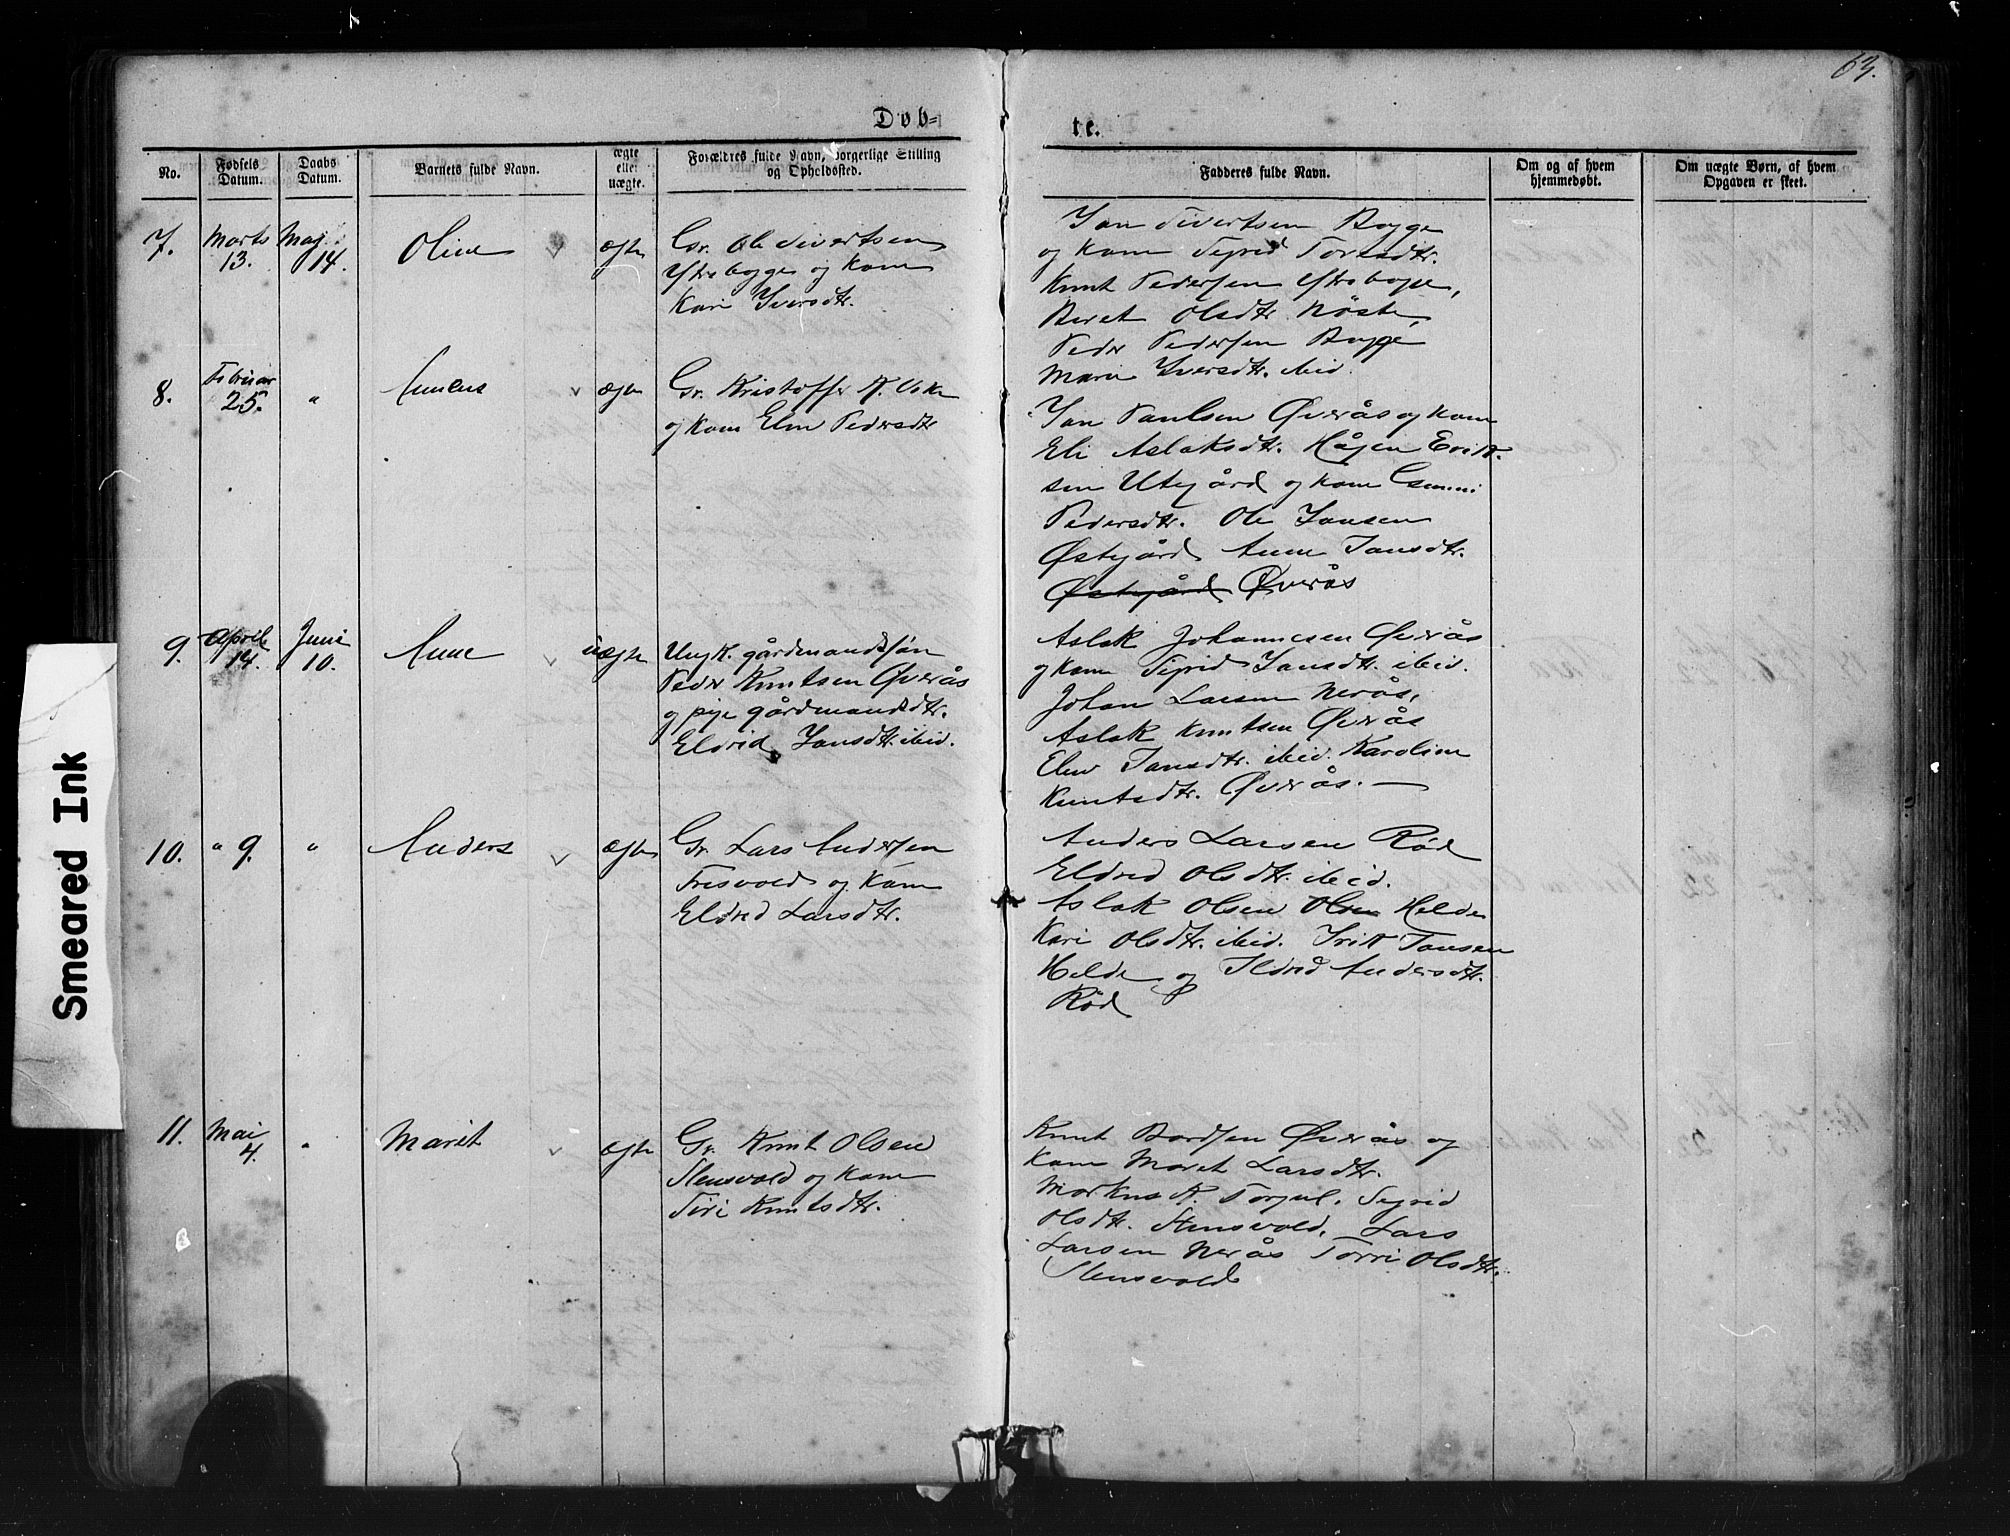 63.
Døb-
te.
No.
Fødsels Datum.
Daabs Datum.
Barnets fulde Navn.
ægte eller uægte.
Forældres fulde Navn, borgerlige Stilling og Opholdssted.
Fadderes fulde Navn.
Om og af hvem hjemmedøbt.
Om uægte Børn, af hvem Opgaven er skeet.
7.
Marts 13.
Maj 14.
Oline
ægte
Gr. Ole Sivertsen
Ytrebogge og kone
Kari Iversdtr.
Jon Sivertsen Bogge
og kone Sigrid Toresdtr.
Knut Pedersen Ytrebogge,
Beret Olsdtr Nøste,
Peder Pedersen Bogge
Marie Iversdtr. ibid.
8.
Februar 25.
"
ægte
Gr. Kristoffer K.
og kone Elen Pedersdtr
Jon Paulsen Øverås og kone
Eli Aslaksdtr. Håjen Erik-
sen Utegård og kone
Pedersdtr. Ole Jonsen
Østegård Anne Jonsdtr.
Østegård Øverås
9.
April 14.
Juni 10.
Anne
uægte
Ungk. gårdmandssøn
Peder Knutsen Øverås
og pige gårdmandsdtr.
Eldrid Jonsdtr. ibid.
Aslak Johannesen Øverås
og kone Sigrid Jonsdtr. ibid.
Johan Larsen Nerås,
Aslak Knutsen Øverås
Elen Jonsdtr. ibid. Karoline
Knutsdtr. Øverås. —
10.
" 9.
"
Anders
ægte
Gr. Lars Andersen
Tresvold og kone
Eldrid Larsdtr.
Anders Larsen Rød
Eldrid Olsdtr. ibid.
Aslak Olsen Olsen Helde
Kari Olsdtr. ibid. Erik Jonsen
Helde og Ildrid Andersdtr.
Rød
11.
Mai 4.
"
Marit
ægte
Gr. Knut Olsen
Stensvold og kone
Siri Knutsdtr.
Knut Bordsen Øverås og
kone Maret Larsdtr.
Markus K. Sigrid
Olsdtr. Stensvold, Lars
Larsen Nerås Torri Olsdtr.
Stensvold
Smeared Ink